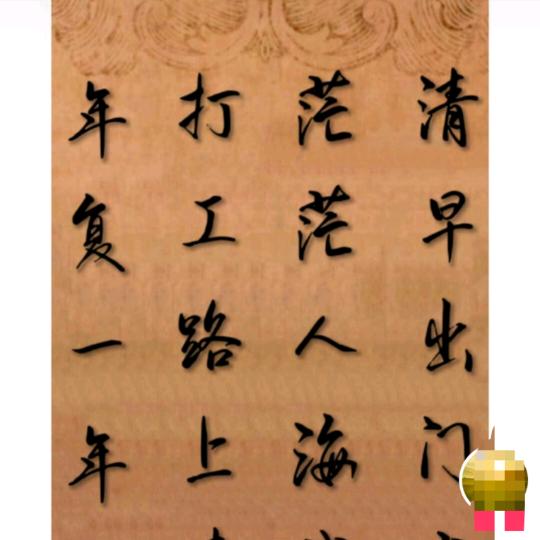 清早出门
茫茫人海
打工路上
年复一年